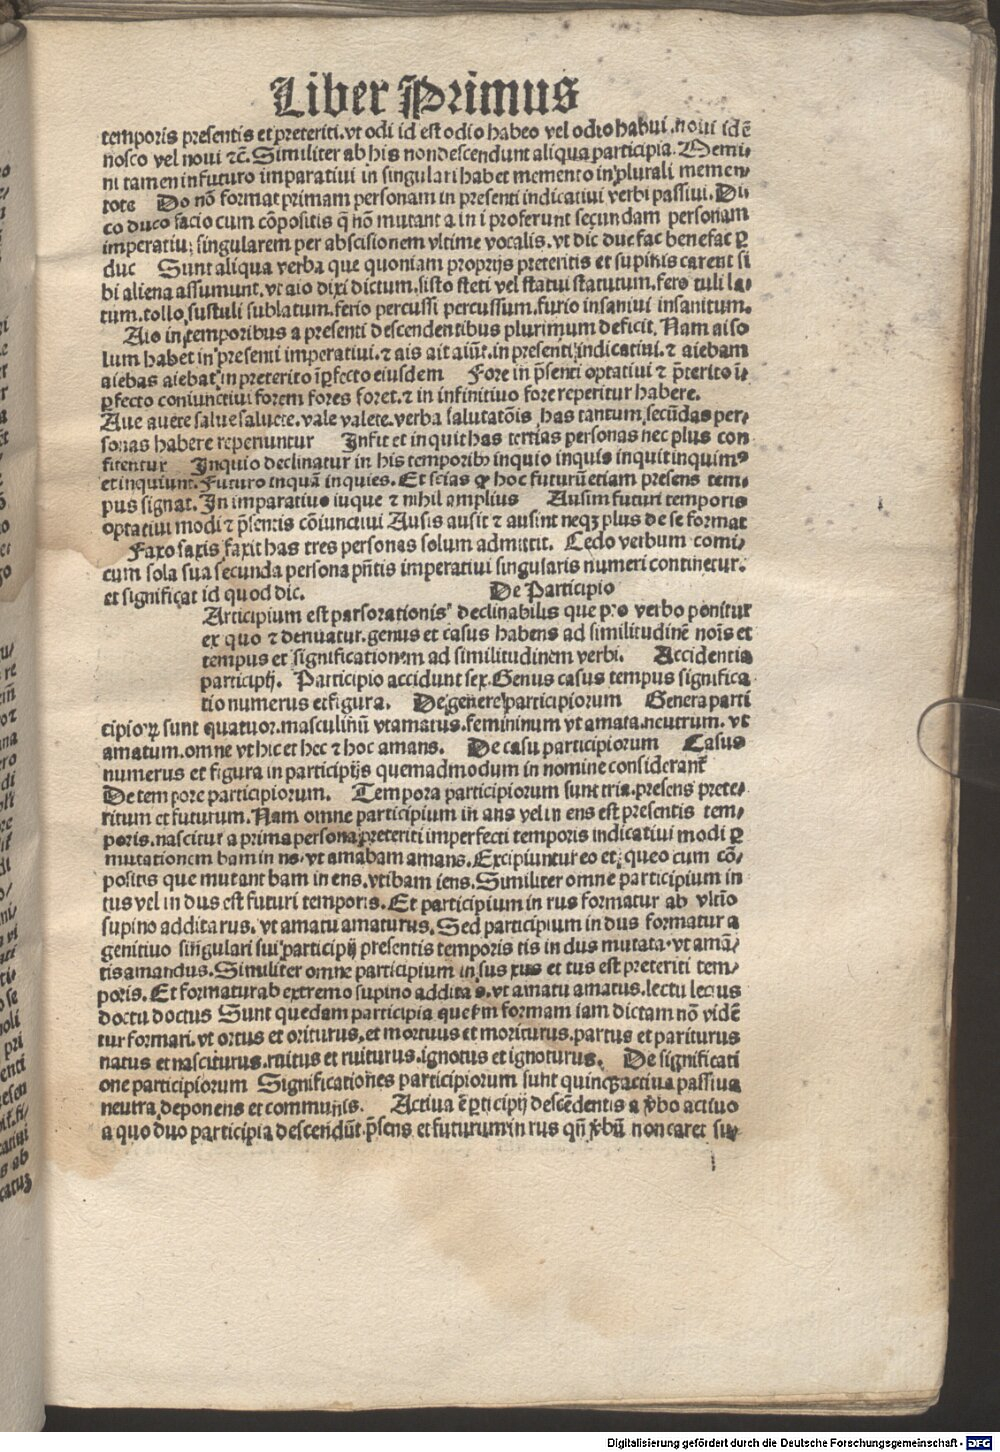 Liber Primus
temporis presentis et preteriti. vt odi id est odio habeo vel odio habui. noui idẽ
nosco vel noui ⁊c̃. Similiter ab his non descendunt aliqua participia. Memi⸗
ni tamen in futuro imparatiui in singulari habet memento in plurali memen⸗
tote Do nõ format primam personam in presenti indicatiui verbi passiui. Di
co duco facio cum cõpositis q̃ nõ mutant a in i proferunt secundam personam
imperatiui singularem per abscisionem vltime vocalis. vt dic duc fac benefac ꝑ
duc Sunt aliqua verba que quoniam proprijs preteritis et supinis carent si
bi aliena assumunt. vt aio dixi dictum. sisto steti vel statui statutum. fero tuli la⸗
tum. tollo sustuli sublatum. ferio percussi percussum. furio insaniui insanitum.
Aio in temporibus a presenti descendentibus plurimum deficit. Nam ai so
lum habet in presenti imperatiui. ⁊ ais ait aiũt. in presenti indicatiui. ⁊ aiebam
aiebas aiebat in preterito ĩꝑfecto eiusdem Fore in p̃senti optatiui ⁊ p̃terito ĩ⸗
ꝑfecto coniunctiui forem fores foret. ⁊ in infinitiuo fore reperitur habere.
Aue auete salue saluete. vale valete. verba salutatõis has tantum secũdas per⸗
sonas habere reperiuntur Infit et inquit has tertias personas nec plus con
fitentur Inquio declinatur in his temporibꝫ inquio inquis inquit inquimꝰ
et inquiunt. Futuro inquã inquies. Et scias ꝙ hoc futurũ etiam presens tem⸗
pus signat. In imparatiuo inque ⁊ nihil amplius Ausim futuri temporis
optatiui modi ⁊ p̃sentis cõiunctiui Ausis ausit ⁊ ausint neqꝫ plus de se format
Faxo faxis faxit has tres personas solum admittit. Cedo verbum comi⸗
cum sola sua secunda persona p̃ntis imperatiui singularis numeri continetur.
et significat id quod dic. De Participio
Articipium est pars orationis declinabilis que pro verbo ponitur
ex quo ⁊ deriuatur. genus et casus habens ad similitudinẽ nois̃ et
tempus et significationem ad similitudinem verbi. Accidentia
participij. Participio accidunt sex. Genus casus tempus significa
tio numerus et figura. De genere participiorum Genera parti
cipioꝝ sunt quatuor. masculinũ vt amatus. femininum vt amata. neutrum. vt
amatum. omne vt hic et hec ⁊ hoc amans. De casu participiorum Casus
numerus et figura in participijs quemadmodum in nomine considerant᷑
De tempore participiorum. Tempora participiorum sunt tria. presens prete⸗
ritum et futurum. Nam omne participium in ans vel in ens est presentis tem⸗
poris. nascitur a prima persona preteriti imperfecti temporis indicatiui modi ꝑ
mutationem bam in ns. vt amabam amans. Excipiuntur eo et queo cum cõ⸗
positis que mutant bam in ens. vt ibam iens. Similiter omne participium in
tus vel in dus est futuri temporis. Et participium in rus formatur ab vltĩo
supino addita rus. vt amatu amaturus. Sed participium in dus formatur a
genitiuo singulari sui participij presentis temporis tis in dus mutata. vt amã⸗
tis amandus. Similiter omne participium in sus xus et tus est preteriti tem⸗
poris. Et formatur ab extremo supino addita s. vt amatu amatus. lectu lectus
doctu doctus Sunt quedam participia que s̃m formam iam dictam nõ vidẽ
tur formari. vt ortus et oriturus. et mortuus et moriturus. partus et pariturus
natus et nasciturus. ruitus et ruiturus. ignotus et ignoturus. De significati
one participiorum Significationes participiorum sunt quinqꝫ actiua passiua
neutra deponens et communis. Actiua ẽ ꝑticipij descẽdentis a v̾bo actiuo
a quo duo participia descendũt. p̃sens et futurum in rus qñ v̾bũ non caret su⸗
Digitalisierung gefördert durch die Deutsche Forschungsgemeinschaft - DFG